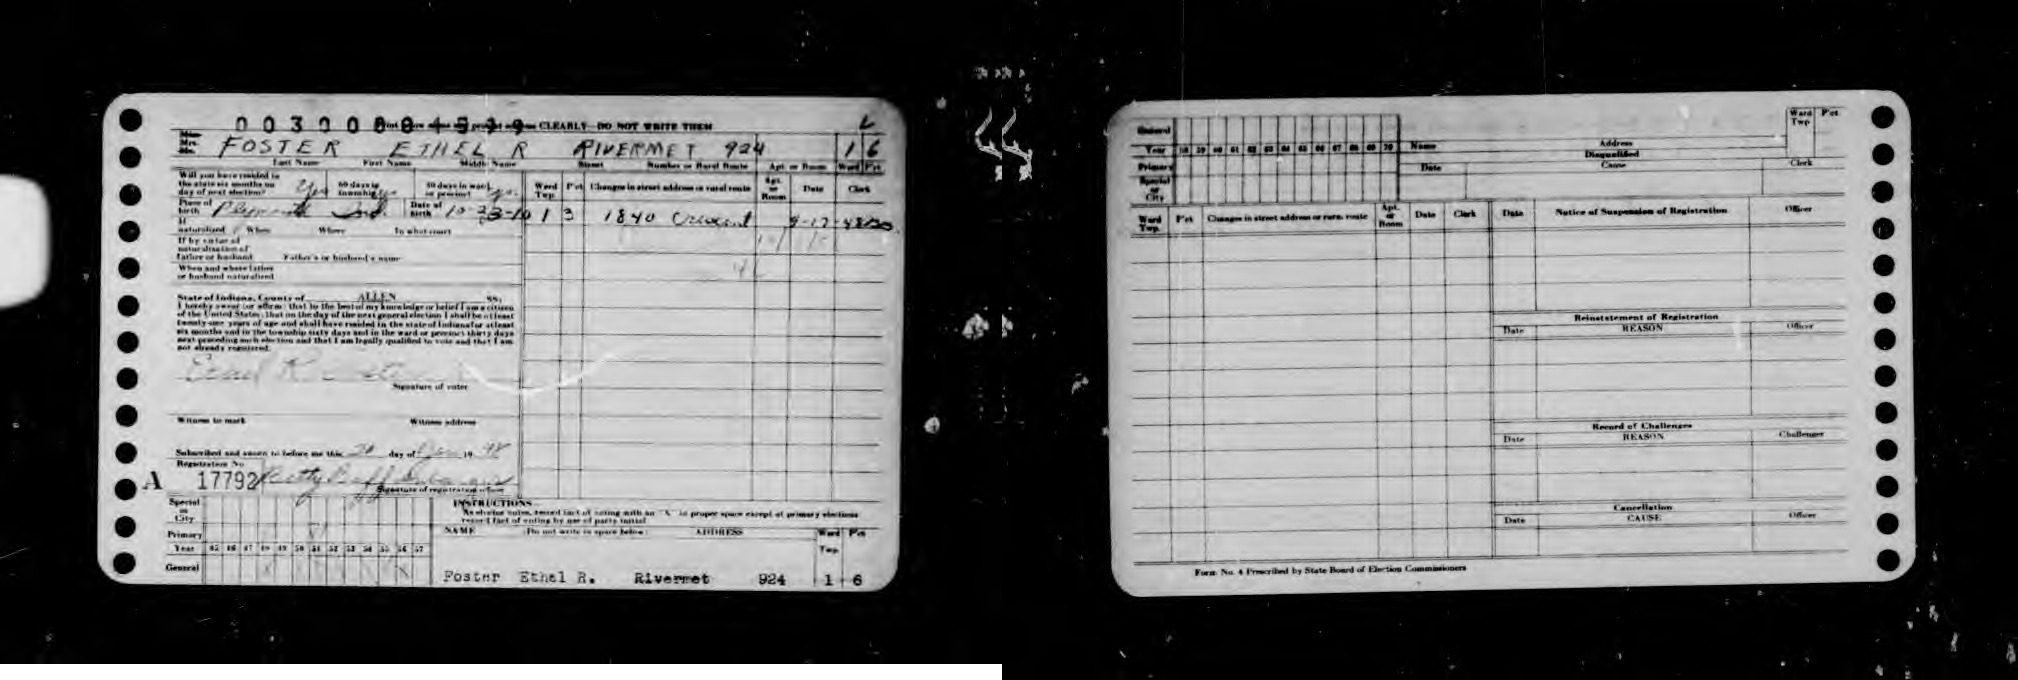 CLEARLY—DO NOT WRITE THEM L
Miss Mrs. Mr. FOSTER ETHEL R RIVERMET 924 1 6
Last Name First Name Middle Name Street Number or Rural Route Apt. or Room Ward Pct
Will you have resided in the state six months on day of next election? Yes 60 days in township yes 30 days in ward or precinct yes
Ward Twp. Pct Changes in street address or rural route Apt. or Room Date Clerk
Place of birth Plymouth Ind. Date of birth 10-23-10
1 3 1840 Crescent 9-17-48
If naturalized When Where In what court
If by virtue of naturalization of father or husband Father's or husband's name
When and where father or husband naturalized
State of Indiana, County of ALLEN ss:
I hereby swear (or affirm) that to the best of my knowledge or belief I am a citizen
of the United States; that on the day of the next general election I shall be at least
twenty-one years of age and shall have resided in the state of Indiana for at least
six months and in the township sixty days and in the ward or precinct thirty days
next preceding such election and that I am legally qualified to vote and that I am
not already registered.
Signature of voter
Witness to mark Witness address
Subscribed and sworn to before me this day of 19 48
Registration No.
A 17792 Betty
Signature of registration officer
Special or City
Primary
Year 45 46 47 48 49 50 51 52 53 54 55 56 57
General
INSTRUCTIONS
As electors votes, record fact of voting with an "X" in proper space except at primary elections
record fact of voting by use of party initial
NAME (Do not write in space below) ADDRESS Ward Twp. Pct
Foster Ethel R. Rivermet 924 1 6
General
Year 58 59 60 61 62 63 64 65 66 67 68 69 70
Primary
Special or City
Name Address Ward Twp Pct
Disqualified
Date Cause Clerk
Ward Twp. Pct Changes in street address or rural route Apt. or Room Date Clerk
Date Notice of Suspension of Registration Officer
Reinstatement of Registration
Date REASON Officer
Record of Challenges
Date REASON Challenger
Cancellation
Date CAUSE Officer
Form No. 4 Prescribed by State Board of Election Commissioners